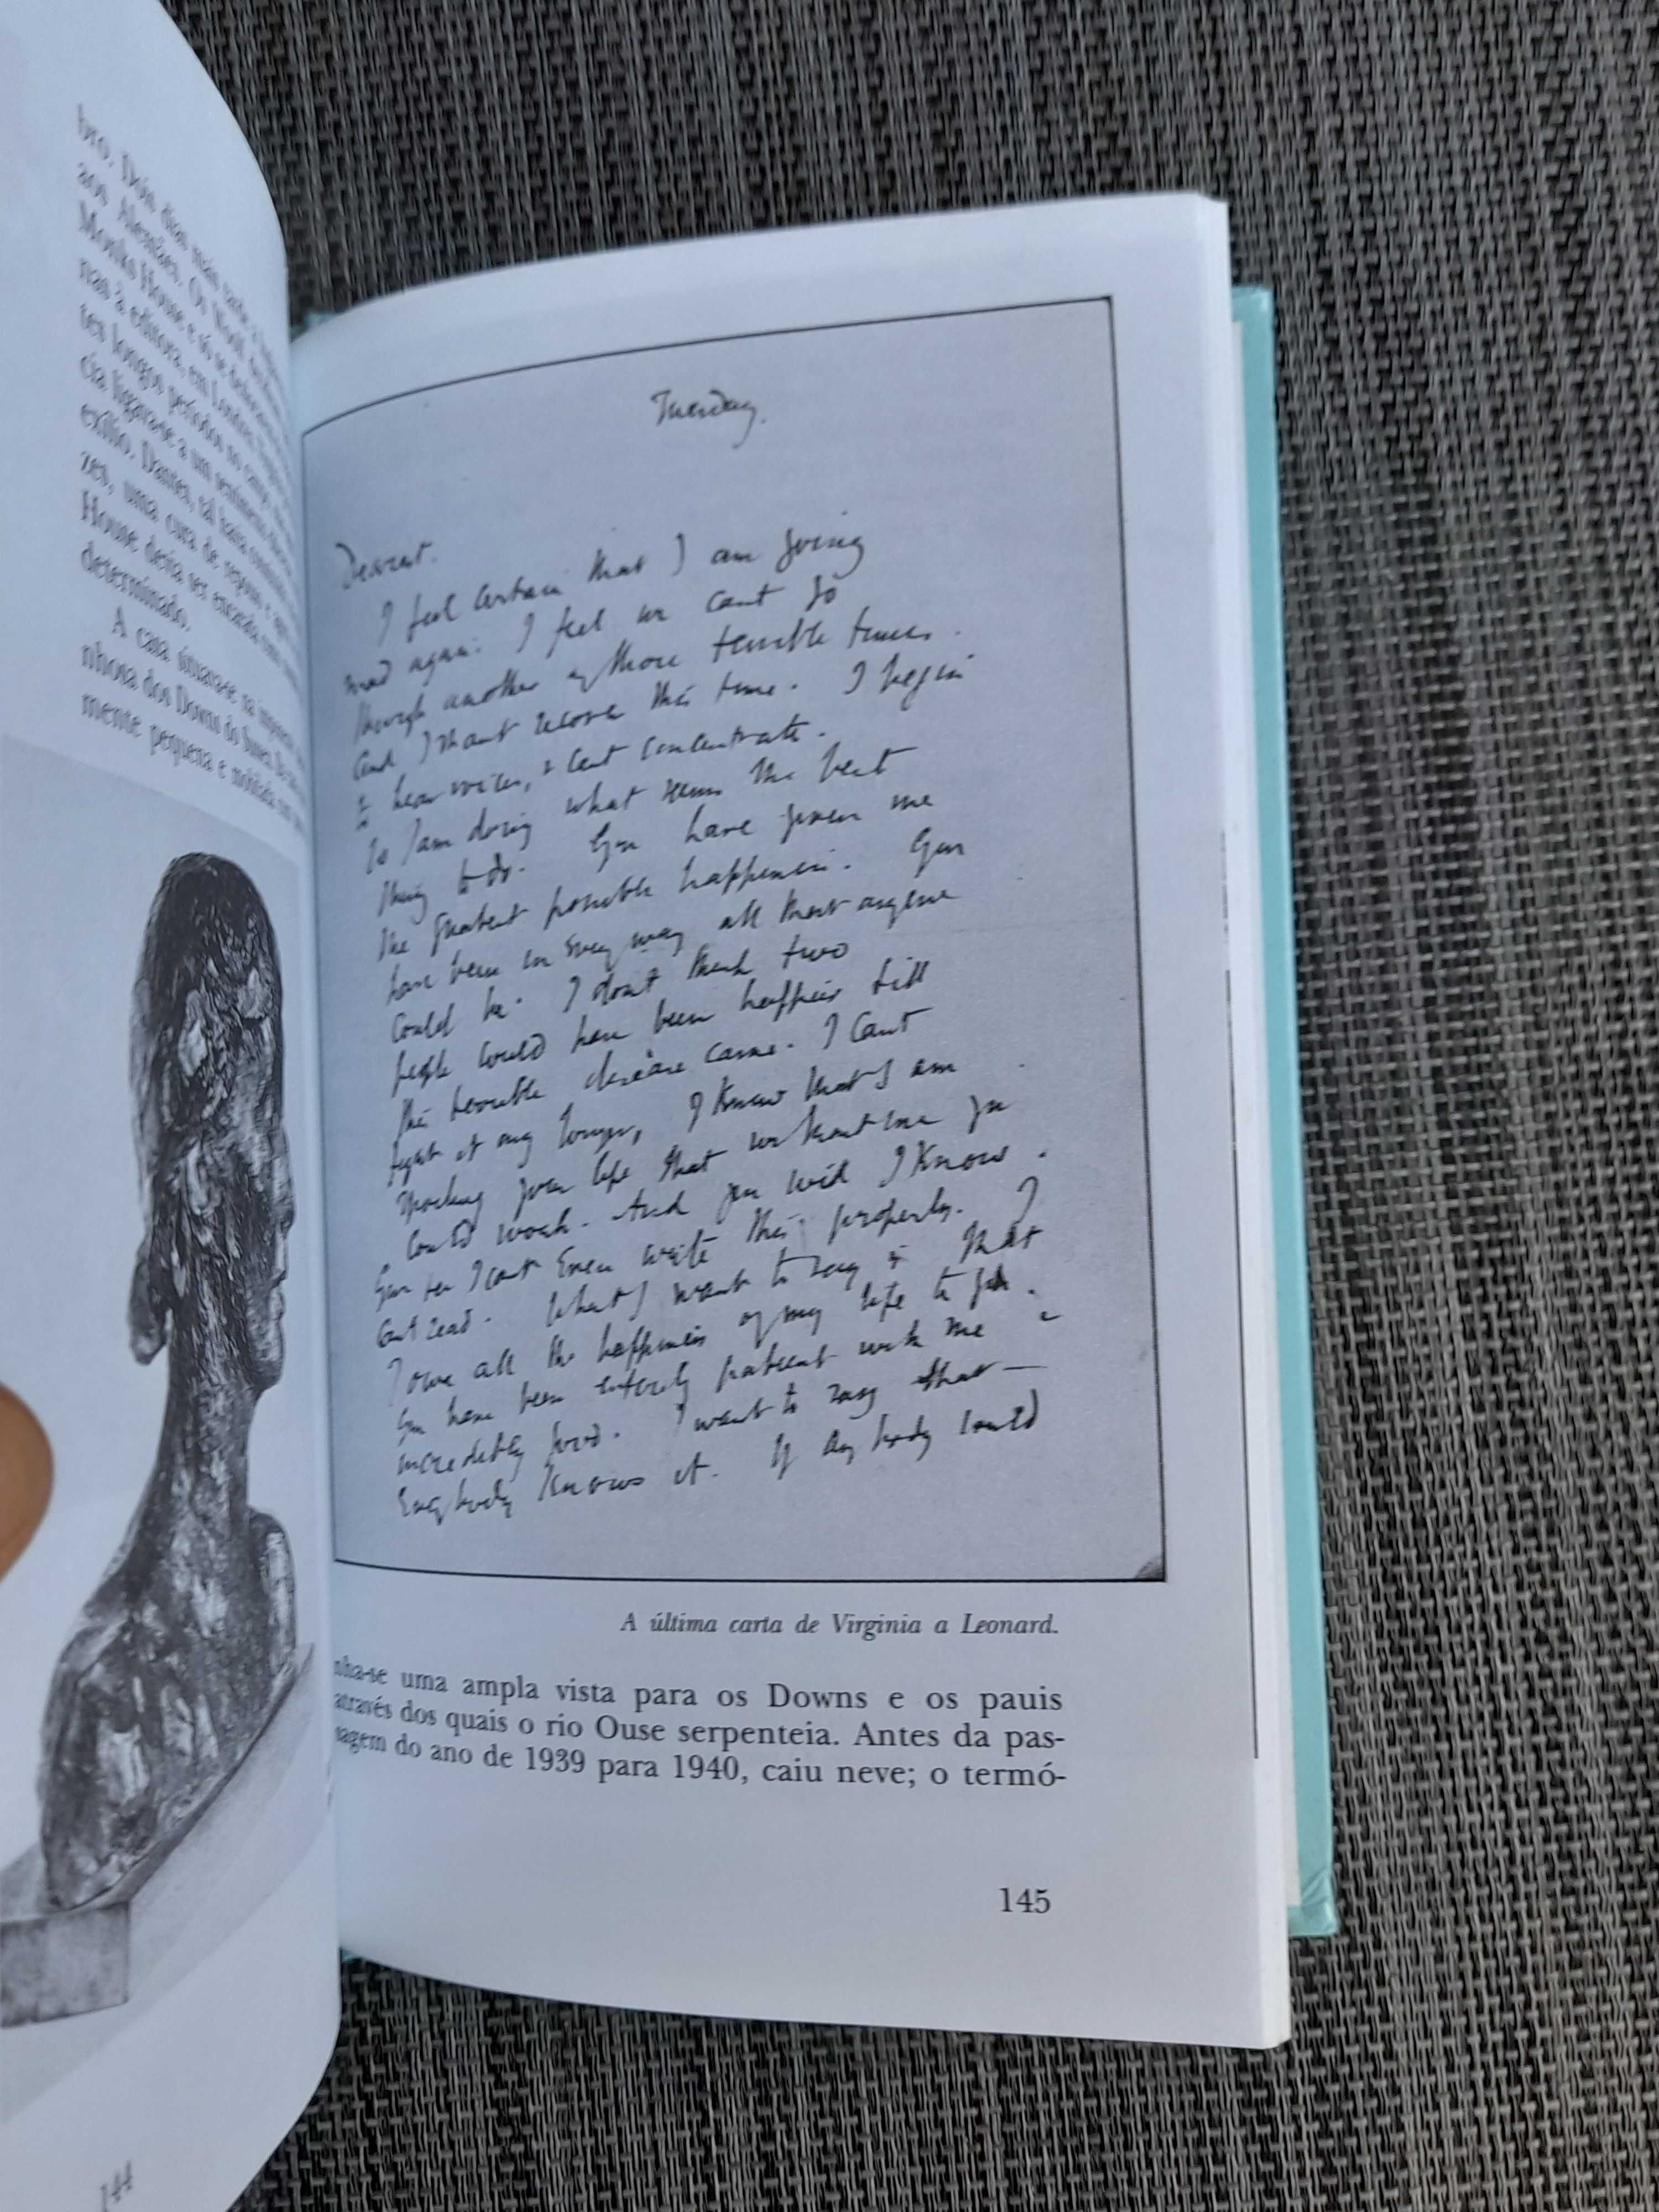 bro. Dois dias mais tarde a
aos Alemães. Os Woolf
Monks House e só se
nas à editora, em Londres.
tes longos períodos no campo,
cia ligara-se a um sentimento
exílio. Dantes, tal havia
zes, uma cura de repouso e
House deria ser encarada como
determinado.
A casa situara-se na
nhosa dos Downs do Sussex.
mente pequena e mobilada
144
Tuesday.
Dearest.
I feel certain that I am going
mad again. I feel we cant go
through another of those terrible times.
And I shant recover this time. I begin
to hear voices, & cant concentrate.
So I am doing what seems the best
thing to do. You have given me
the greatest possible happiness. You
have been in every way all that anyone
could be. I dont think two
people could have been happier till
this terrible disease came. I cant
fight it any longer, I know that I am
spoiling your life that without me you
could work. And you will I know.
You see I cant even write this properly. I
cant read. What I want to say is that
I owe all the happiness of my life to you.
You have been entirely patient with me &
incredibly good. I want to say that —
everybody knows it. If anybody could
A última carta de Virginia a Leonard.
nha-se uma ampla vista para os Downs e os pauis
através dos quais o rio Ouse serpenteia. Antes da pas-
sagem do ano de 1939 para 1940, caiu neve; o termó-
145